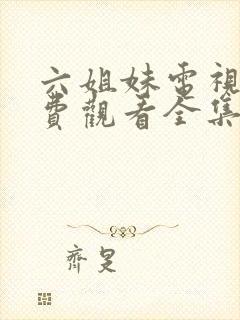 六姐妹電視
費觀看全集
齊旻